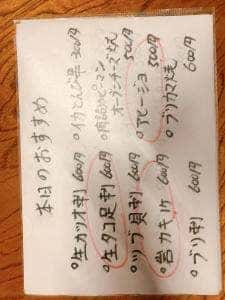 本日のおすすめ
○生カツオ刺 600円
○生タコ足刺 600円
○ツブ貝刺 600円
○岩カキ1ケ 600円
○ブリ刺 600円
○イカとんび串 300円
○肉詰ピーマン
オーブンチーズやき 500円
○アヒージョ 500円
○ブリカマ焼 600円